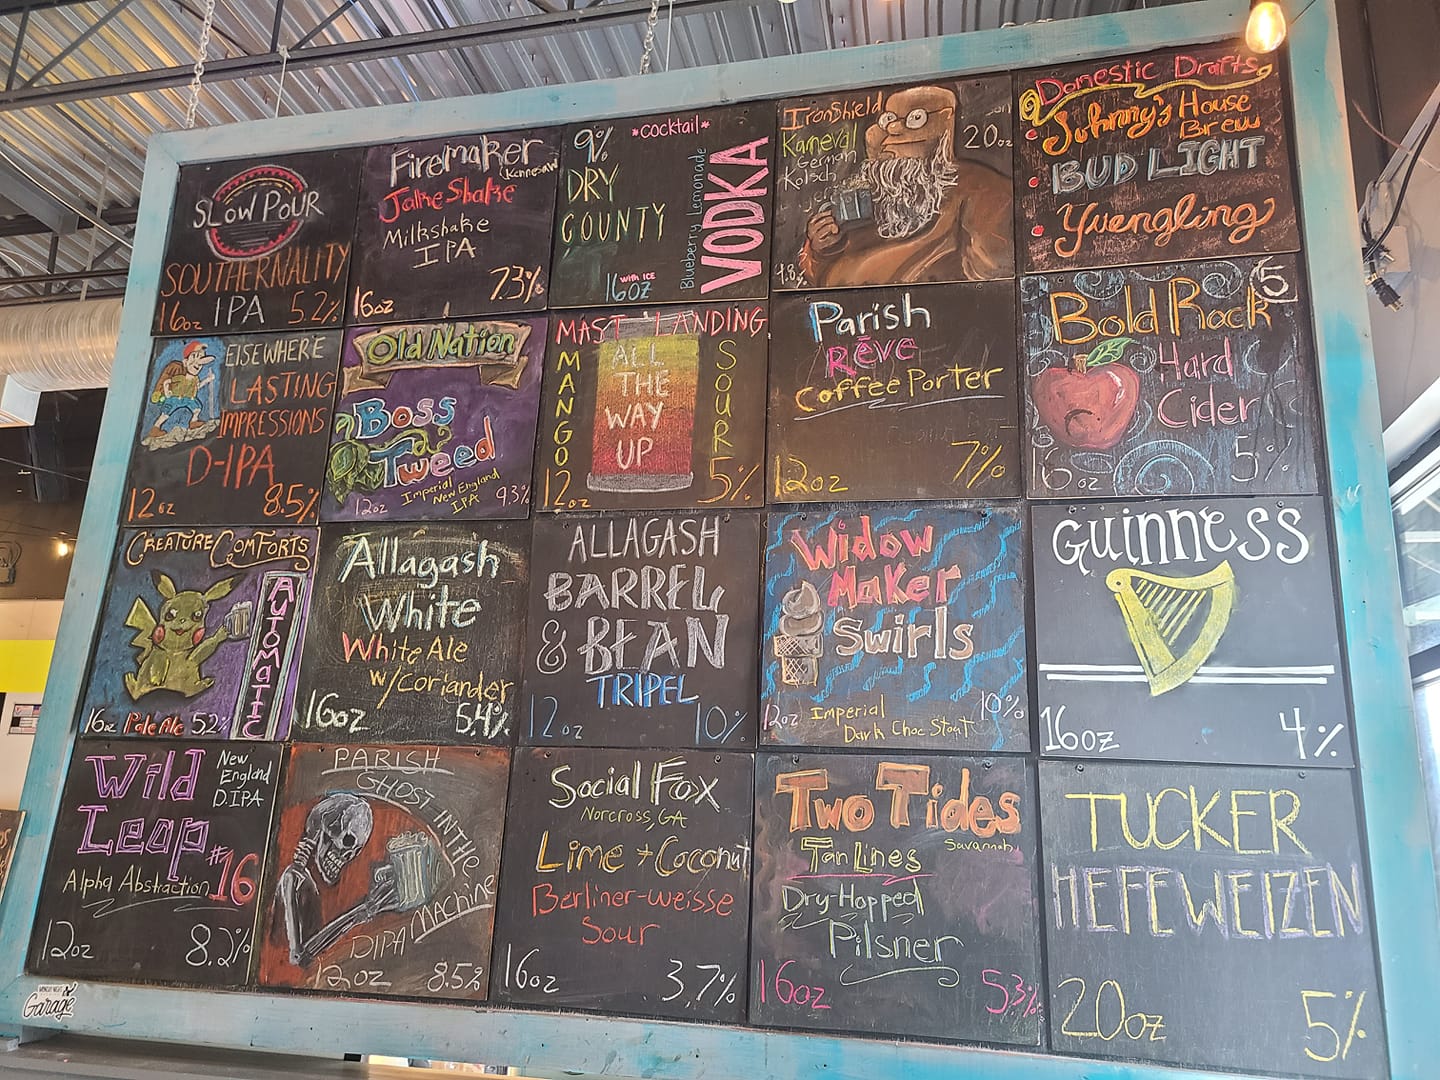 SLOW POUR
SOUTHERNALITY
16oz IPA 5.2%
Firemaker
(Kennesaw)
Jake Shake
Milkshake
IPA
16oz 7.3%
*cocktail*
9%
DRY
COUNTY
with ICE
16oz
Blueberry Lemonade
VODKA
IronShield
Kaneval
German
Kolsch
20oz
4.8%
Domestic Drafts
Johnny's House
Brew
BUD LIGHT
Yuengling
ELSEWHERE
LASTING
IMPRESSIONS
D-IPA
12oz 8.5%
Old Nation
Boss
Tweed
Imperial
New England
IPA
12oz 9.3%
MAST LANDING
MANGO
ALL
THE
WAY
UP
SOUR
12oz 5%
Parish
Rêve
Coffee Porter
12oz 7%
5
Bold Rock
Hard
Cider
16oz 5%
CREATURE COMFORTS
AUTOMATIC
16oz Pale Ale 5.2%
Allagash
White
White Ale
w/Coriander
16oz 5.4%
ALLAGASH
BARREL
& BEAN
TRIPEL
12oz 10%
Widow
Maker
Swirls
12oz Imperial 10%
Dark Choc Stout
GUINNESS
16oz 4%
Wild
Leap
New
England
D.IPA
Alpha Abstraction #16
12oz 8.2%
PARISH
GHOST IN THE
MACHINE
DIPA
12oz 8.5%
Social Fox
Norcross, GA
Lime + Coconut
Berliner-weisse
Sour
16oz 3.7%
Two Tides
Savannah
Tan Lines
Dry-Hopped
Pilsner
16oz 5.3%
TUCKER
HEFEWEIZEN
20oz 5%
Garage